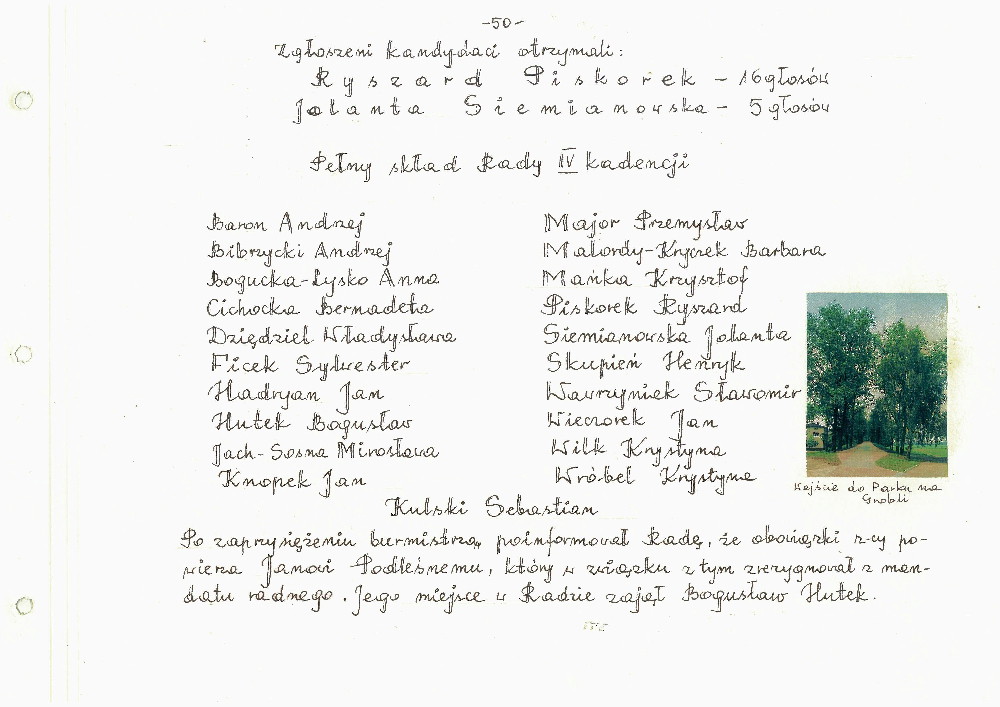 -50-
Zgłoszeni kandydaci otrzymali:
Ryszard Piskorek - 16 głosów
Jolanta Siemianowska - 5 głosów
Pełny skład Rady IV kadencji
Baron Andrzej
Bibrzycki Andrzej
Bogucka-Łysko Anna
Cichocka Bernadeta
Dzięgiel Władysława
Ficek Sylwester
Hadryan Jan
Hutek Bogusław
Jach-Sosna Mirosława
Knopek Jan
Major Przemysław
Malordy-Kryczek Barbara
Mańka Krzysztof
Piskorek Ryszard
Siemianowska Jolanta
Skupień Henryk
Wawrzyniek Sławomir
Wieczorek Jan
Wilk Krystyna
Wróbel Krystyna
Kulski Sebastian
Wejście do Parku na
Grobli
Po zaprzysiężeniu burmistrza, poinformował Radę, że obowiązki z-cy po-
wierza Janowi Podleśnemu, który w związku z tym zrezygnował z man-
datu radnego. Jego miejsce w Radzie zajął Bogusław Hutek.